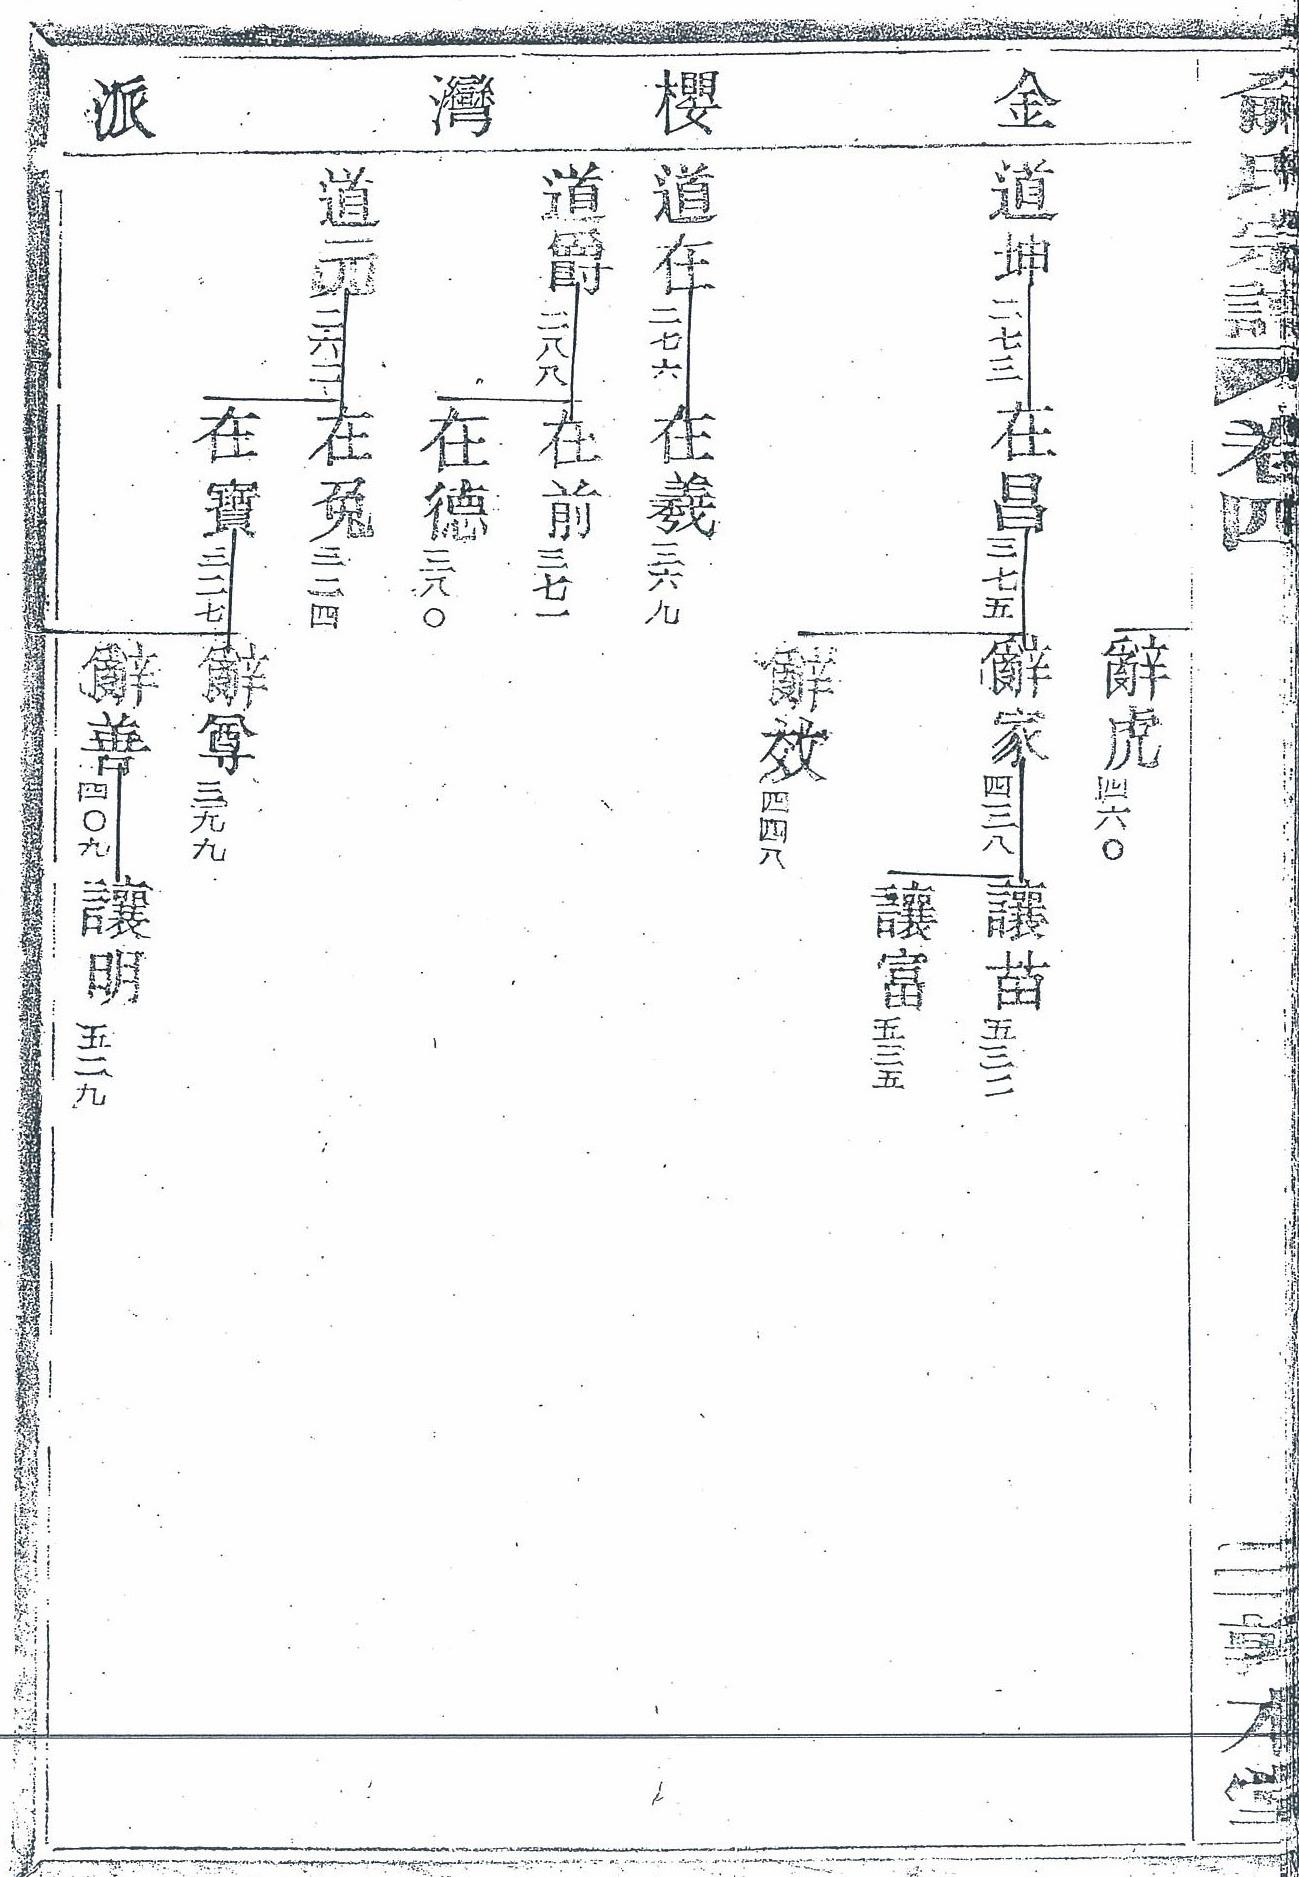 俞氏宗譜
卷四
敦本堂
金櫻灣派
辭虎
四六〇
道坤
二七三
在昌
三七五
辭家
四三八
讓苗
五三二
讓富
五三五
辭效
四四八
道在
二七六
在羲
三六九
道爵
二八八
在前
三七一
在德
三八〇
道元
二六二
在兔
三二四
在寶
三二七
辭尊
三九九
辭善
四〇九
讓明
五二九